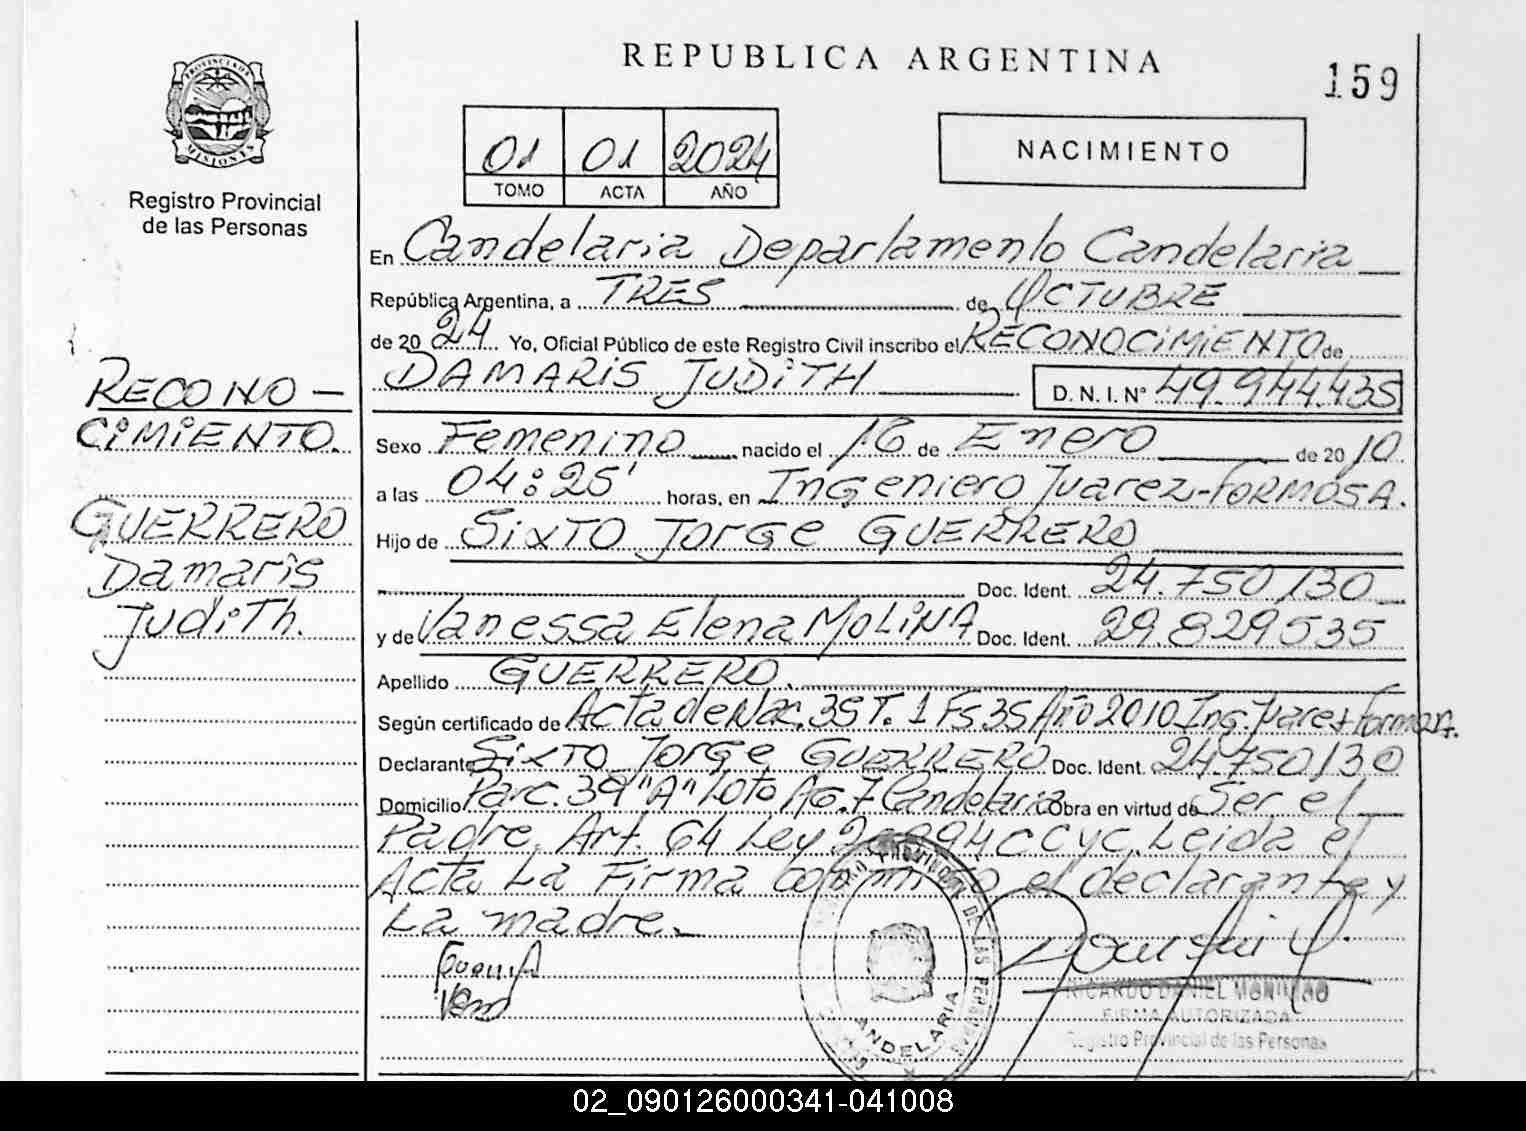 REPUBLICA ARGENTINA
159
PROVINCIA DE
MISIONES
Registro Provincial
de las Personas
01 01 2024
TOMO ACTA AÑO
NACIMIENTO
En Candelaria Departamento Candelaria
República Argentina, a TRES de OCTUBRE
de 2024 Yo, Oficial Público de este Registro Civil inscribo el RECONOCIMIENTO de
DAMARIS JUDITH D. N. I. Nº 49.944.435
RECONO-
CIMIENTO.
GUERRERO
Damaris
Judith.
Sexo Femenino nacido el 16 de Enero de 2010
a las 04:25' horas, en Ingeniero Juarez-FORMOSA.
Hijo de SIXTO JORGE GUERRERO
Doc. Ident. 24.750.130
y de Vanessa Elena MOLINA Doc. Ident. 29.829535
Apellido GUERRERO.
Según certificado de Acta de Nac. 35 T. 1 Fs 35 Año 2010 Ing. Juarez Formosa.
Declarante SIXTO JORGE GUERRERO Doc. Ident. 24.750130
Domicilio Parc. 39 "A" Loto Ag. 7 Candelaria Obra en virtud de Ser el
Padre. Art. 64 Ley CCyC. Leida el
Acta La Firma conmigo el declarante y
La madre.
CANDELARIA
RICARDO DANIEL
FIRMA AUTORIZADA
Registro Provincial de las Personas
02_090126000341-041008